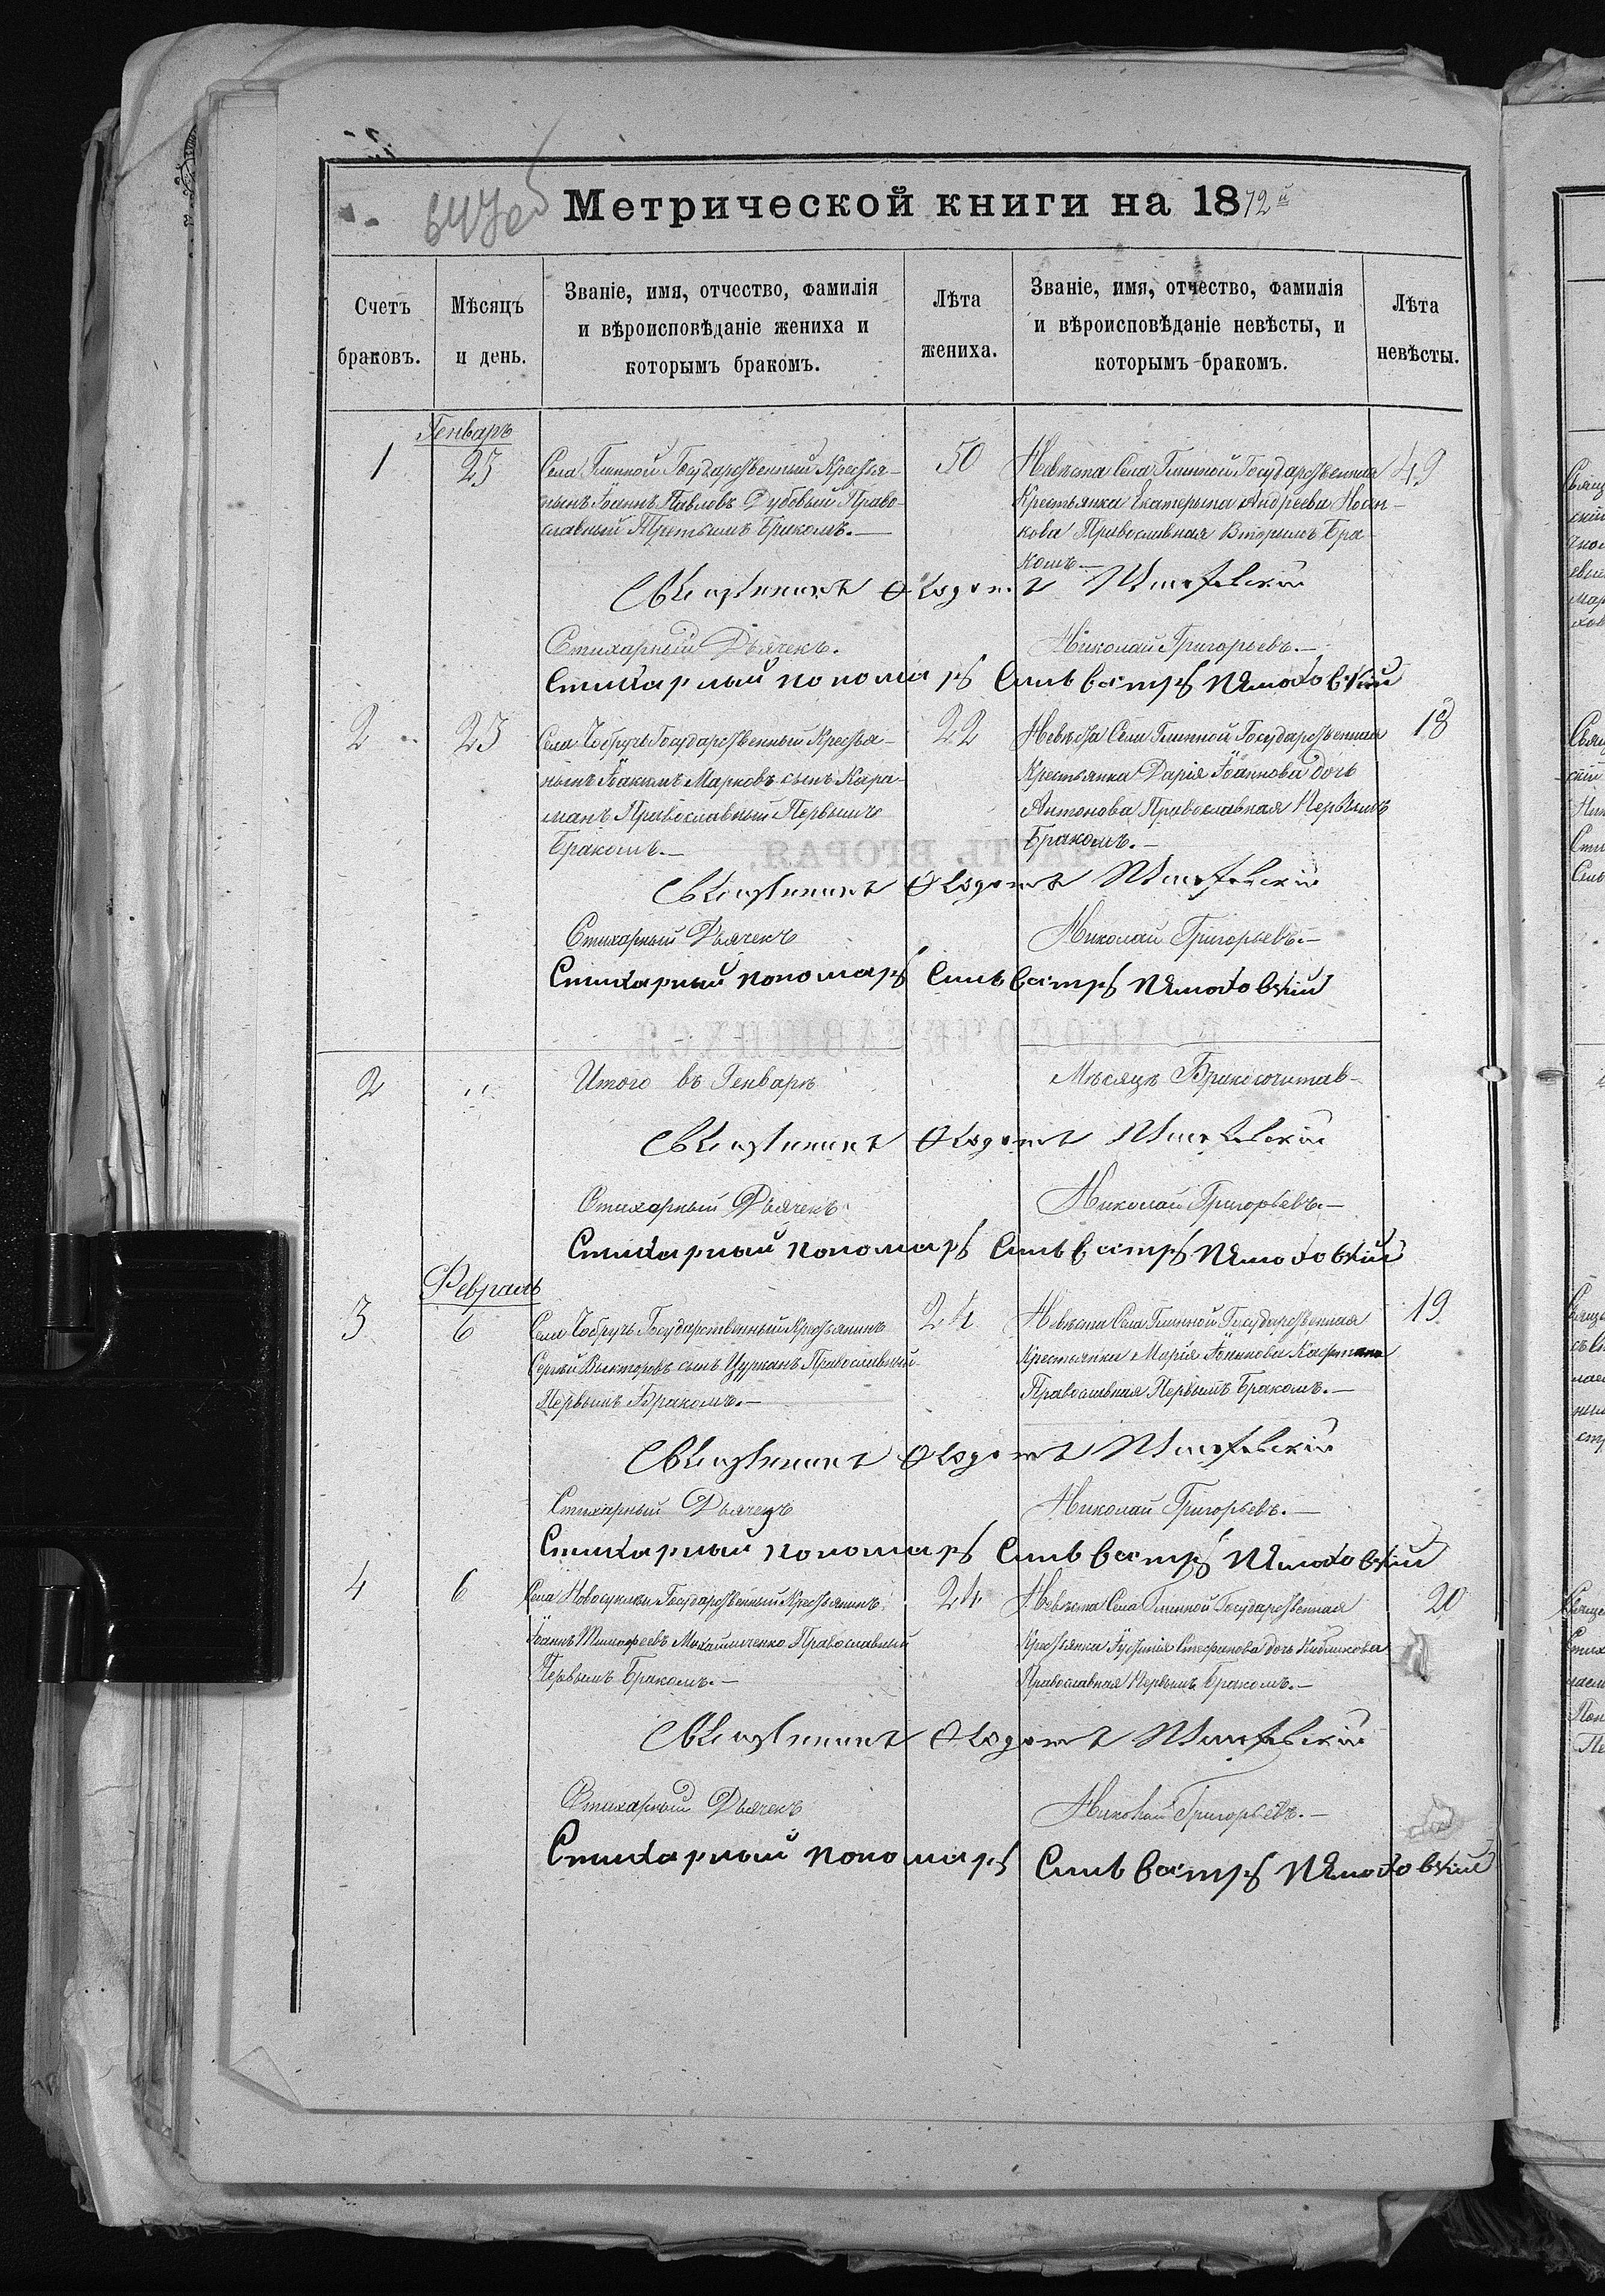 Метрической книги на 1872й
Счетъ браковъ.
Мѣсяцъ и день.
Званіе, имя, отчество, фамилія
и вѣроисповѣданіе жениха и
которымъ бракомъ.
Лѣта жениха.
Званіе, имя, отчество, фамилія
и вѣроисповѣданіе невѣсты, и
которымъ бракомъ.
Лѣта невѣсты.
Генварь
1
25
Села Глинной Государственный Крестья-
нинъ Іоаннъ Павловъ Дубовый Право-
славный Третьимъ Бракомъ.—
50
Невѣста Села Глинной Государственная
Крестьянка Екатерина Андреева
кова Православная Вторымъ Бра-
комъ—
49
Священникъ Ѳеодотъ
Стихарный Дьячекъ.
Николай Григорьевъ.—
Стихарный пономарь Сильвестръ
2
25
Села Чобручъ Государственный Крестья-
нинъ Іоакимъ Марковъ сынъ Кара-
манъ Православный Первымъ
Бракомъ.—
22
Невѣста Села Глинной Государственная
Крестьянка Дарія Іоаннова дочь
Антонова Православная Первымъ
Бракомъ.—
18
Священникъ Ѳеодотъ
Стихарный Дьячекъ
Николай Григорьевъ.—
Стихарный пономарь Сильвестръ
2
Итого въ Генварѣ
Мѣсяцѣ Бракосочитав-
Священникъ Ѳеодотъ
Стихарный Дьячекъ
Николай Григорьевъ.—
Стихарный пономарь Сильвестръ
Февраль
3
6
Села Чобручъ Государственный Крестьянинъ
Сергѣй Викторовъ сынъ Цурканъ Православный
Первымъ Бракомъ.—
24
Невѣста Села Глинной Государственная
Крестьянка Марія Іоаннова
Православная Первымъ Бракомъ.—
19
Священникъ Ѳеодотъ
Стихарный Дьячекъ
Николай Григорьевъ.—
Стихарный пономарь Сильвестръ
4
6
Села Государственный Крестьянинъ
Іоаннъ Тимофеевъ Православный
Первымъ Бракомъ.—
24
Невѣста Села Глинной Государственная
Крестьянка Стефанова дочь
Православная Первымъ Бракомъ.—
20
Священникъ Ѳеодотъ
Стихарный Дьячекъ
Николай Григорьевъ.—
Стихарный пономарь Сильвестръ